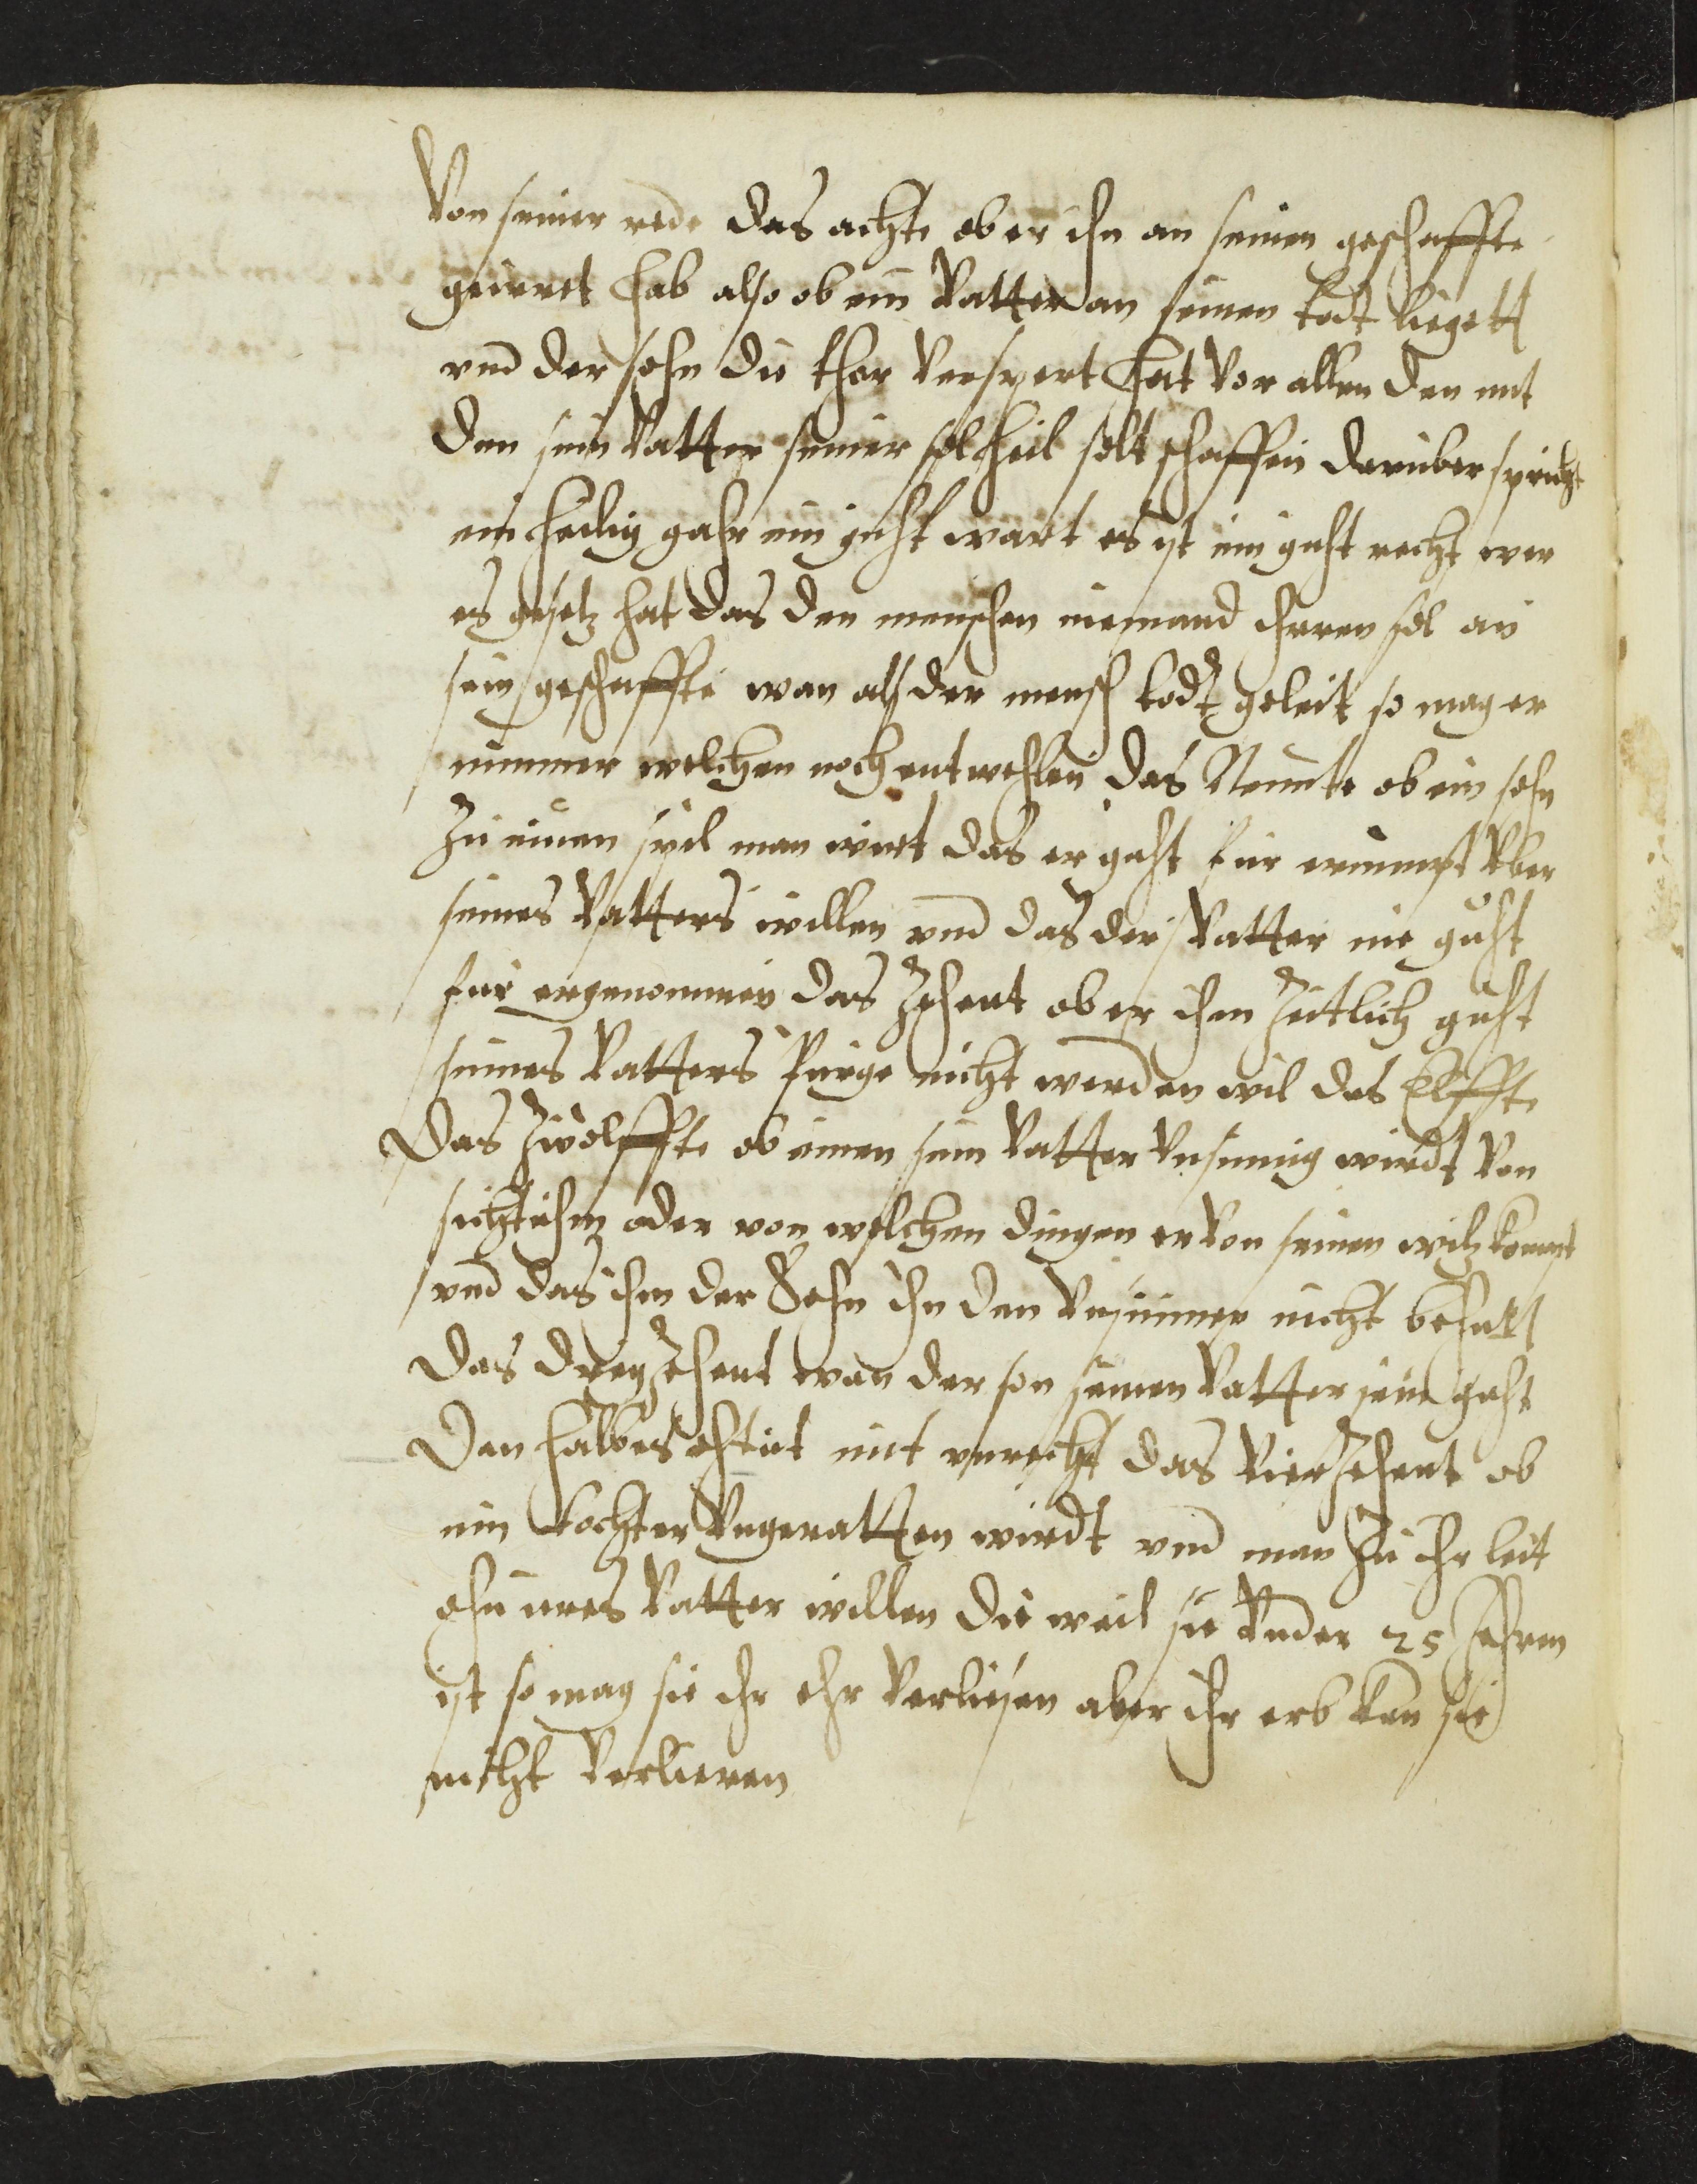 Von seiner rede das achte ob er ihn an seinen geschaffte
geirret hab also ob ein Vatter an seinen todt liegett
vnd der sohn die thor versperrt hat vor allen den mit
den sein Vatter seiner sel heil solt schaffen darüber spricht
ein heilig gahr ein guht wart es ist ein guht recht wer
es gesetz hat das den menschen niemand ihrren sol an
sein geschaffte wan alß der mensch todt geleit so mag er
nimmer welchen noch entwehlen das Neunte ob ein sohn
Zu einen spil man wirt das er guht für ernimpt Vber
seines Vatters willen vnd das der Vatter nie guht
für ergenommen das Zehent ob er ihm Zeitlich guht
seines Vatters Pürge nicht werden wil das Elffte
Das Zwölffte ob einen sein Vatter Vnsinnig wirdt Von
sichtuhm oder von welchen dingen er von seinen witz kompt
vnd das ihm der Sohn ihn den Vnsinnen nicht behutt
Das dreyzehent wan der son seinen Vatter sein guht
Den halbes ehtiet mit vnrecht das Vierzehent ob
ein tochter Vngeratten wirdt vnd man Zu ihr leit
ohn eures Vatter willen die weil sie Vnder 25 Jahren
ist so mag sie ihr ehr Verliesen aber ihr erb kan sie
nicht Verlieren